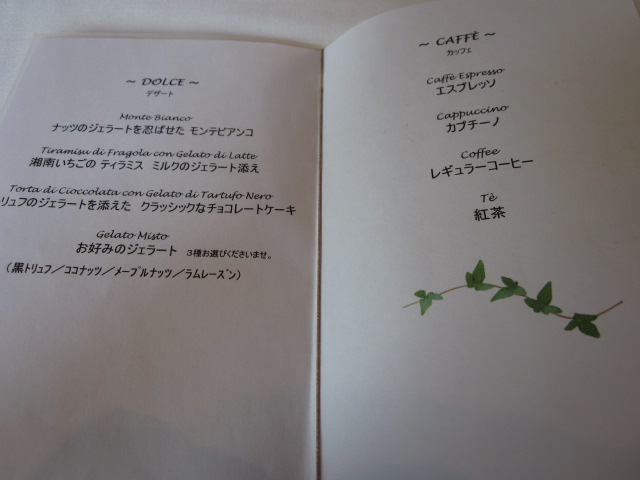 ~ DOLCE ~
デザート
Monte Bianco
ナッツのジェラートを忍ばせた モンテビアンコ
Tiramisu di Fragola con Gelato di Latte
湘南いちごの ティラミス ミルクのジェラート添え
Torta di Cioccolata con Gelato di Tartufo Nero
リュフのジェラートを添えた クラッシックなチョコレートケーキ
Gelato Misto
お好みのジェラート 3種お選びくださいませ。
(黒トリュフ/ココナッツ/メープルナッツ/ラムレーズン)
~ CAFFÈ ~
カッフェ
Caffè Espresso
エスプレッソ
Cappuccino
カプチーノ
Coffee
レギュラーコーヒー
Tè
紅茶